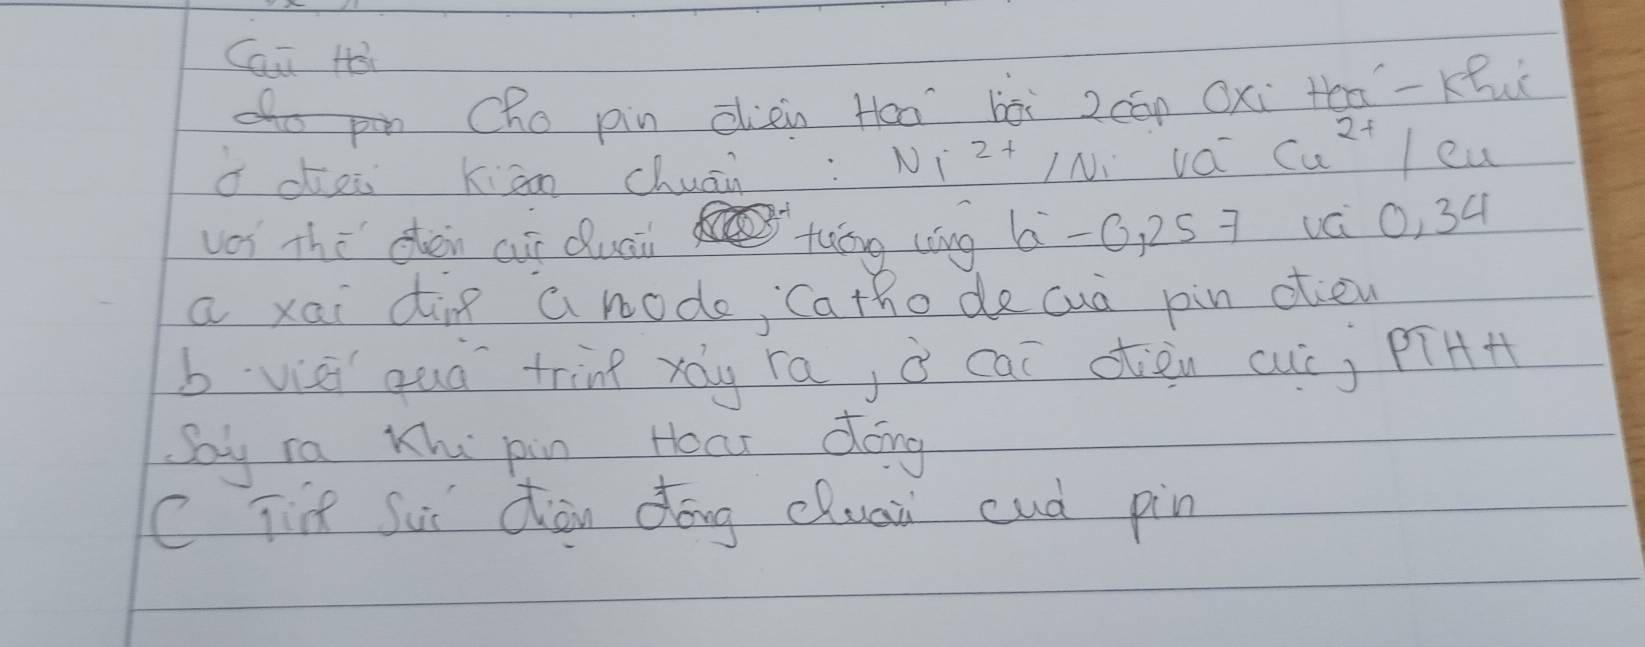 Câu Hỏi
Cho pin điện Hoá bởi 2 cặp Oxi Hoá - Khử
ở điều kiện chuẩn : Ni²⁺/Ni và Cu²⁺/Cu
với thế điện cực chuẩn tương ứng là -0,257 và 0,34
a xác định anode, cathode của pin điện
b. viết quá trình xảy ra, ở các điện cực, PTHH
Sảy ra khi pin Hoạt động
C Tính Sức điện động chuẩn của pin